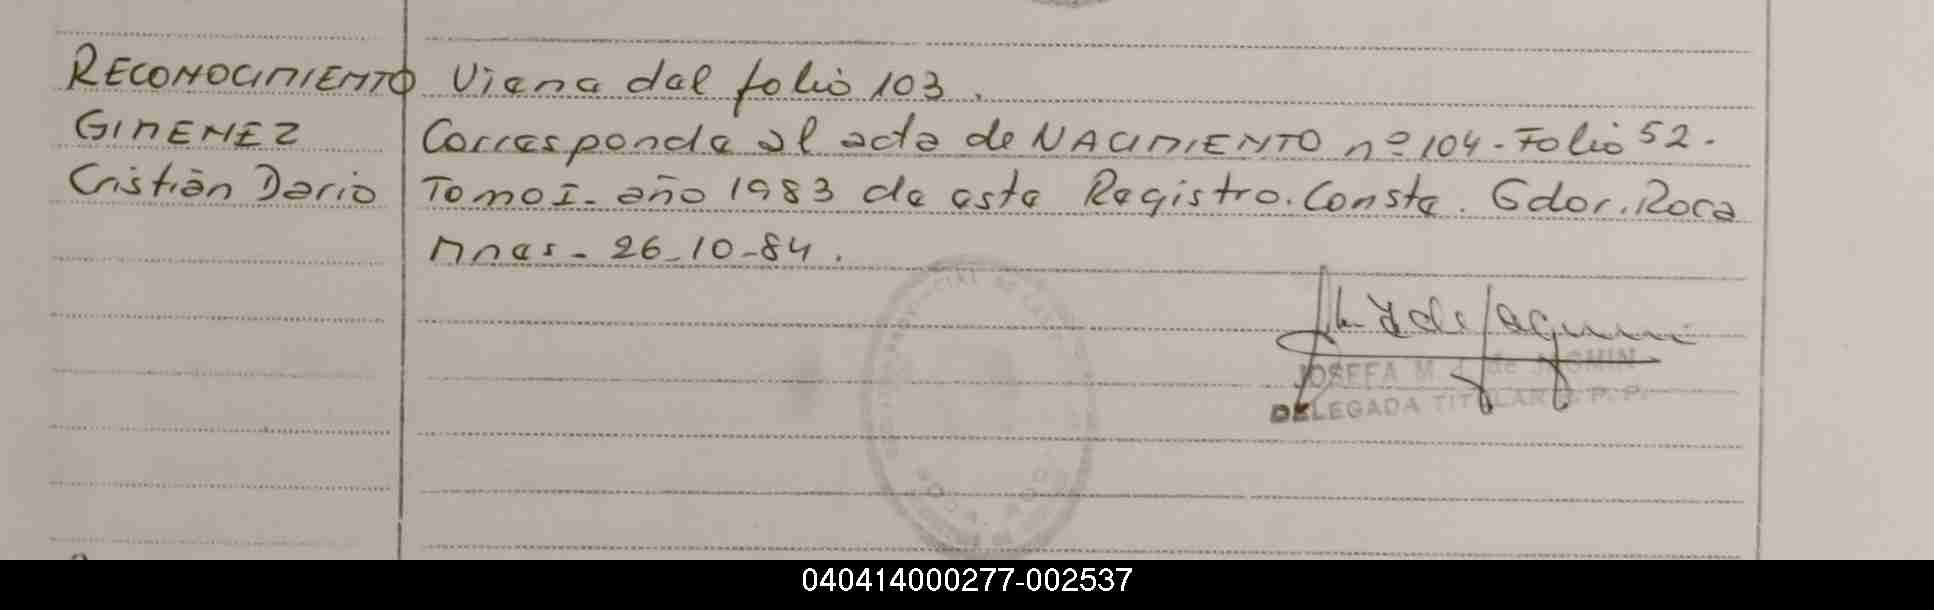 RECONOCIMIENTO Viene del folio 103.
GIMENEZ Corresponde al acta de NACIMIENTO nº 104 - Folio 52.
Cristián Dario Tomo I - año 1983 de este Registro. Conste. Gdor. Roca
Mnes - 26-10-84.
JOSEFA M. de
DELEGADA TITULAR R. P. P.
040414000277-002537